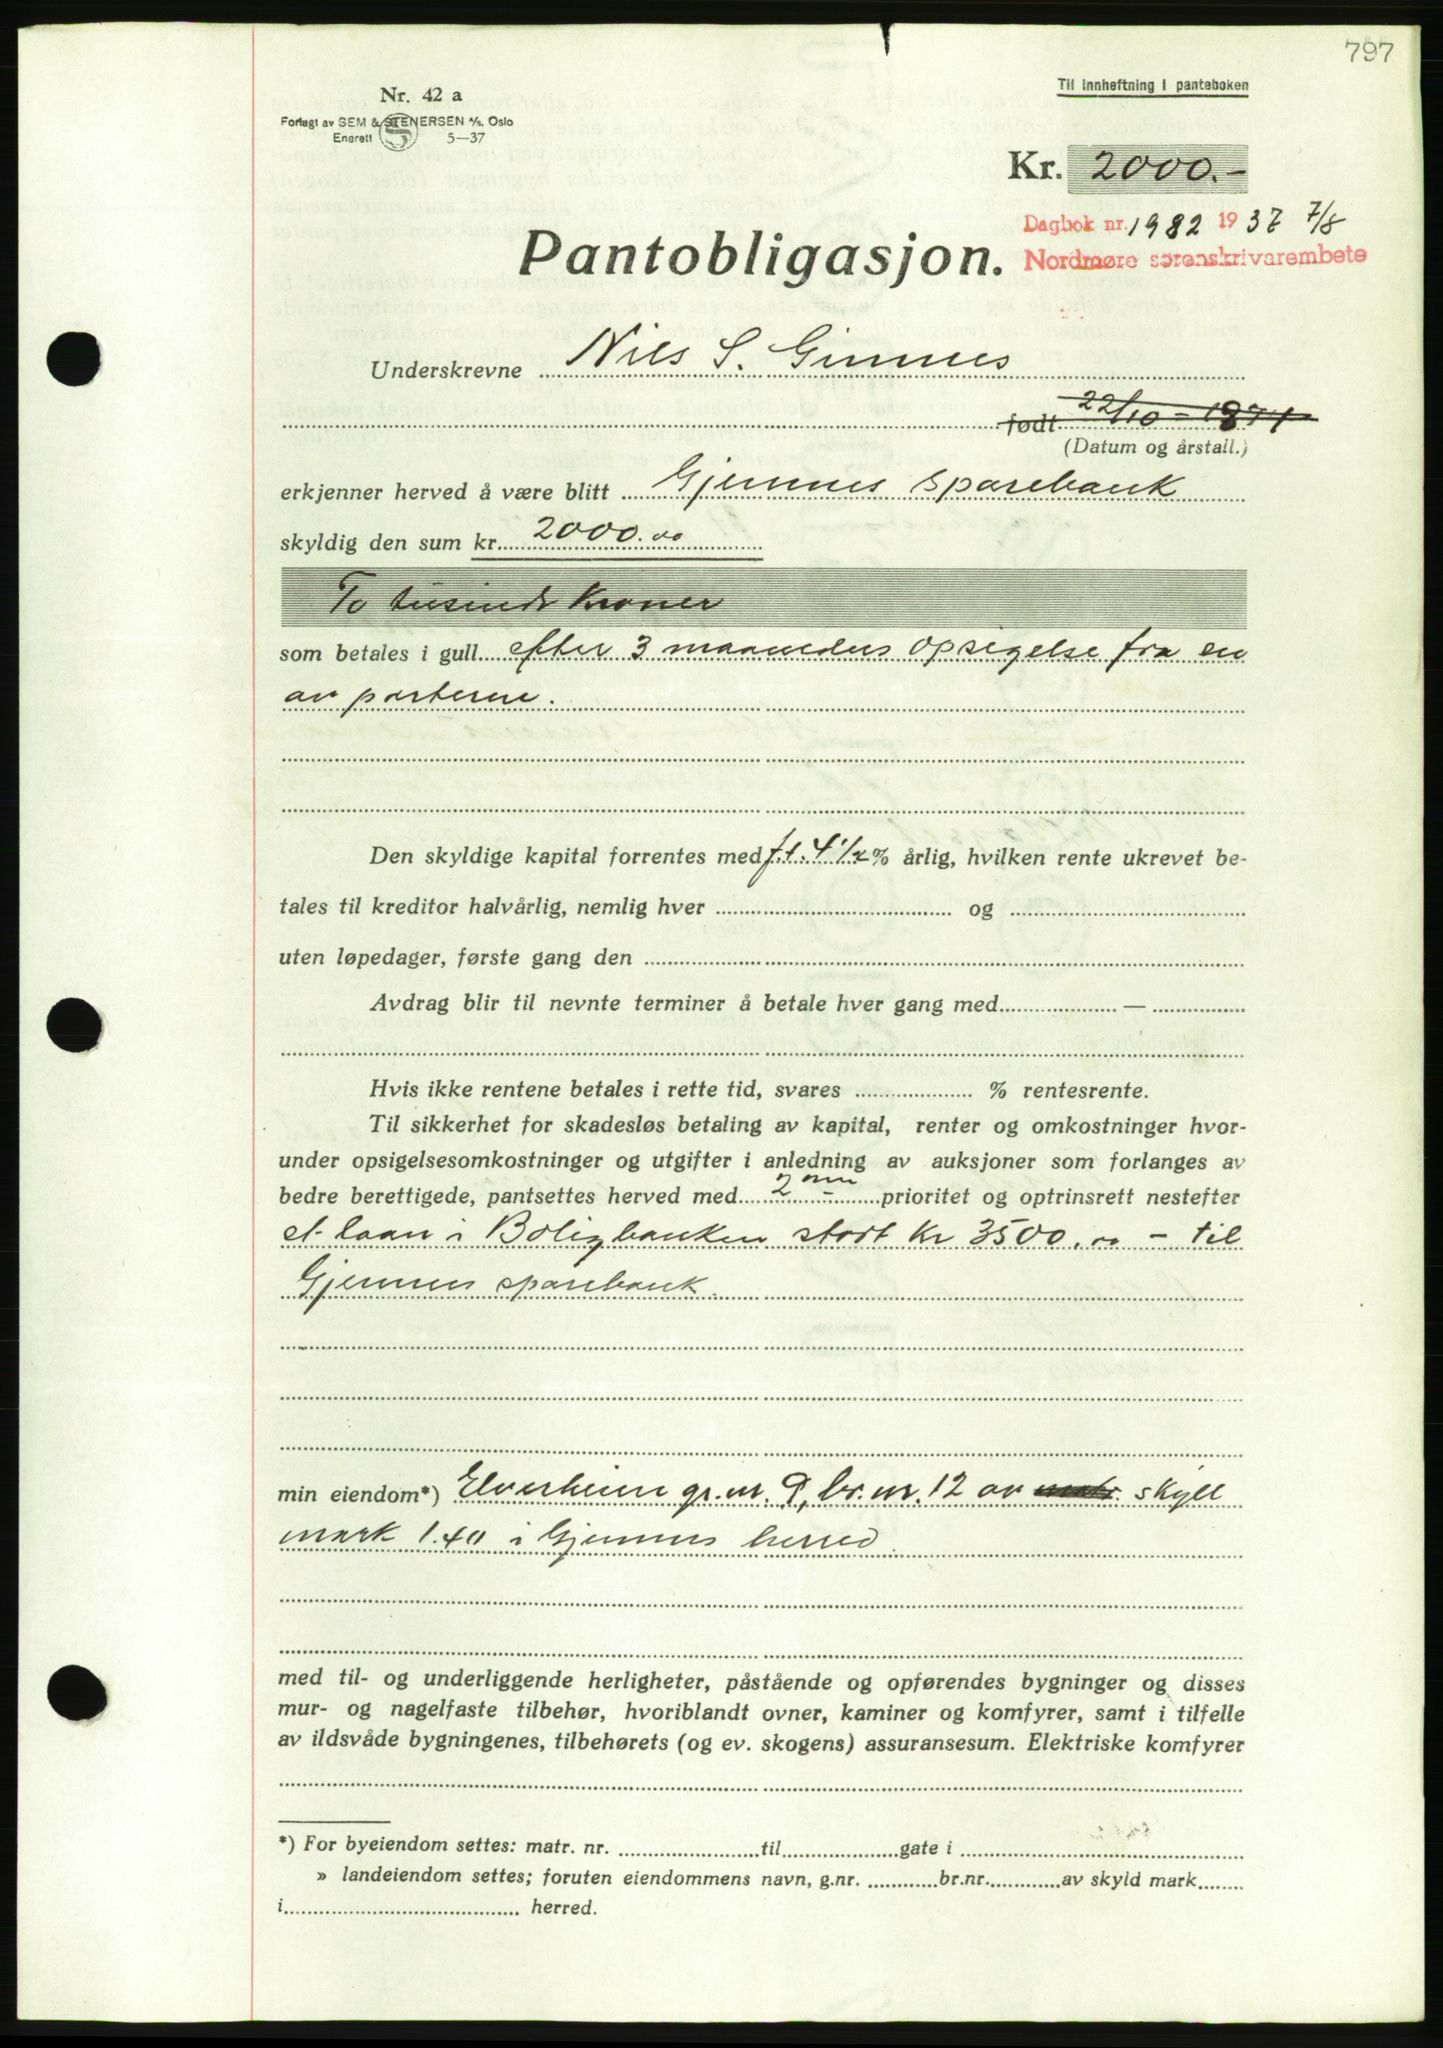 797
Til innheftning i panteboken
Nr. 42 a
Forlagt av SEM & STENERSEN A/S. Oslo
Enerett 5—37
Kr. 2000.-
Dagbok nr. 1982 1937 7/8
Nordmøre sorenskrivarembete
Pantobligasjon.
Underskrevne Nils S. Gimnes
født 22/10 - 1871
(Datum og årstall.)
erkjenner herved å være blitt Gjemnes sparebank
skyldig den sum kr. 2000.00
To tusinde kroner
som betales i gull efter 3 maaneders opsigelse fra en
av parterne.
Den skyldige kapital forrentes med f.t. 4 1/2 % årlig, hvilken rente ukrevet be-
tales til kreditor halvårlig, nemlig hver og
uten løpedager, første gang den
Avdrag blir til nevnte terminer å betale hver gang med —
Hvis ikke rentene betales i rette tid, svares % rentesrente.
Til sikkerhet for skadesløs betaling av kapital, renter og omkostninger hvor-
under opsigelsesomkostninger og utgifter i anledning av auksjoner som forlanges av
bedre berettigede, pantsettes herved med 2 - prioritet og optrinsrett nestefter
et laan i Boligbanken stort Kr 3500.00 - til
Gjemnes sparebank.
min eiendom*) Elverheim gr.nr. 9, br.nr. 12 av matr. skyll
mark 1.40 i Gjemnes herred
med til- og underliggende herligheter, påstående og opførendes bygninger og disses
mur- og nagelfaste tilbehør, hvoriblandt ovner, kaminer og komfyrer, samt i tilfelle
av ildsvåde bygningenes, tilbehørets (og ev. skogens) assuransesum. Elektriske komfyrer
*) For byeiendom settes: matr. nr. til gate i
» landeiendom settes; foruten eiendommens navn, g.nr. br.nr. av skyld mark
i herred.